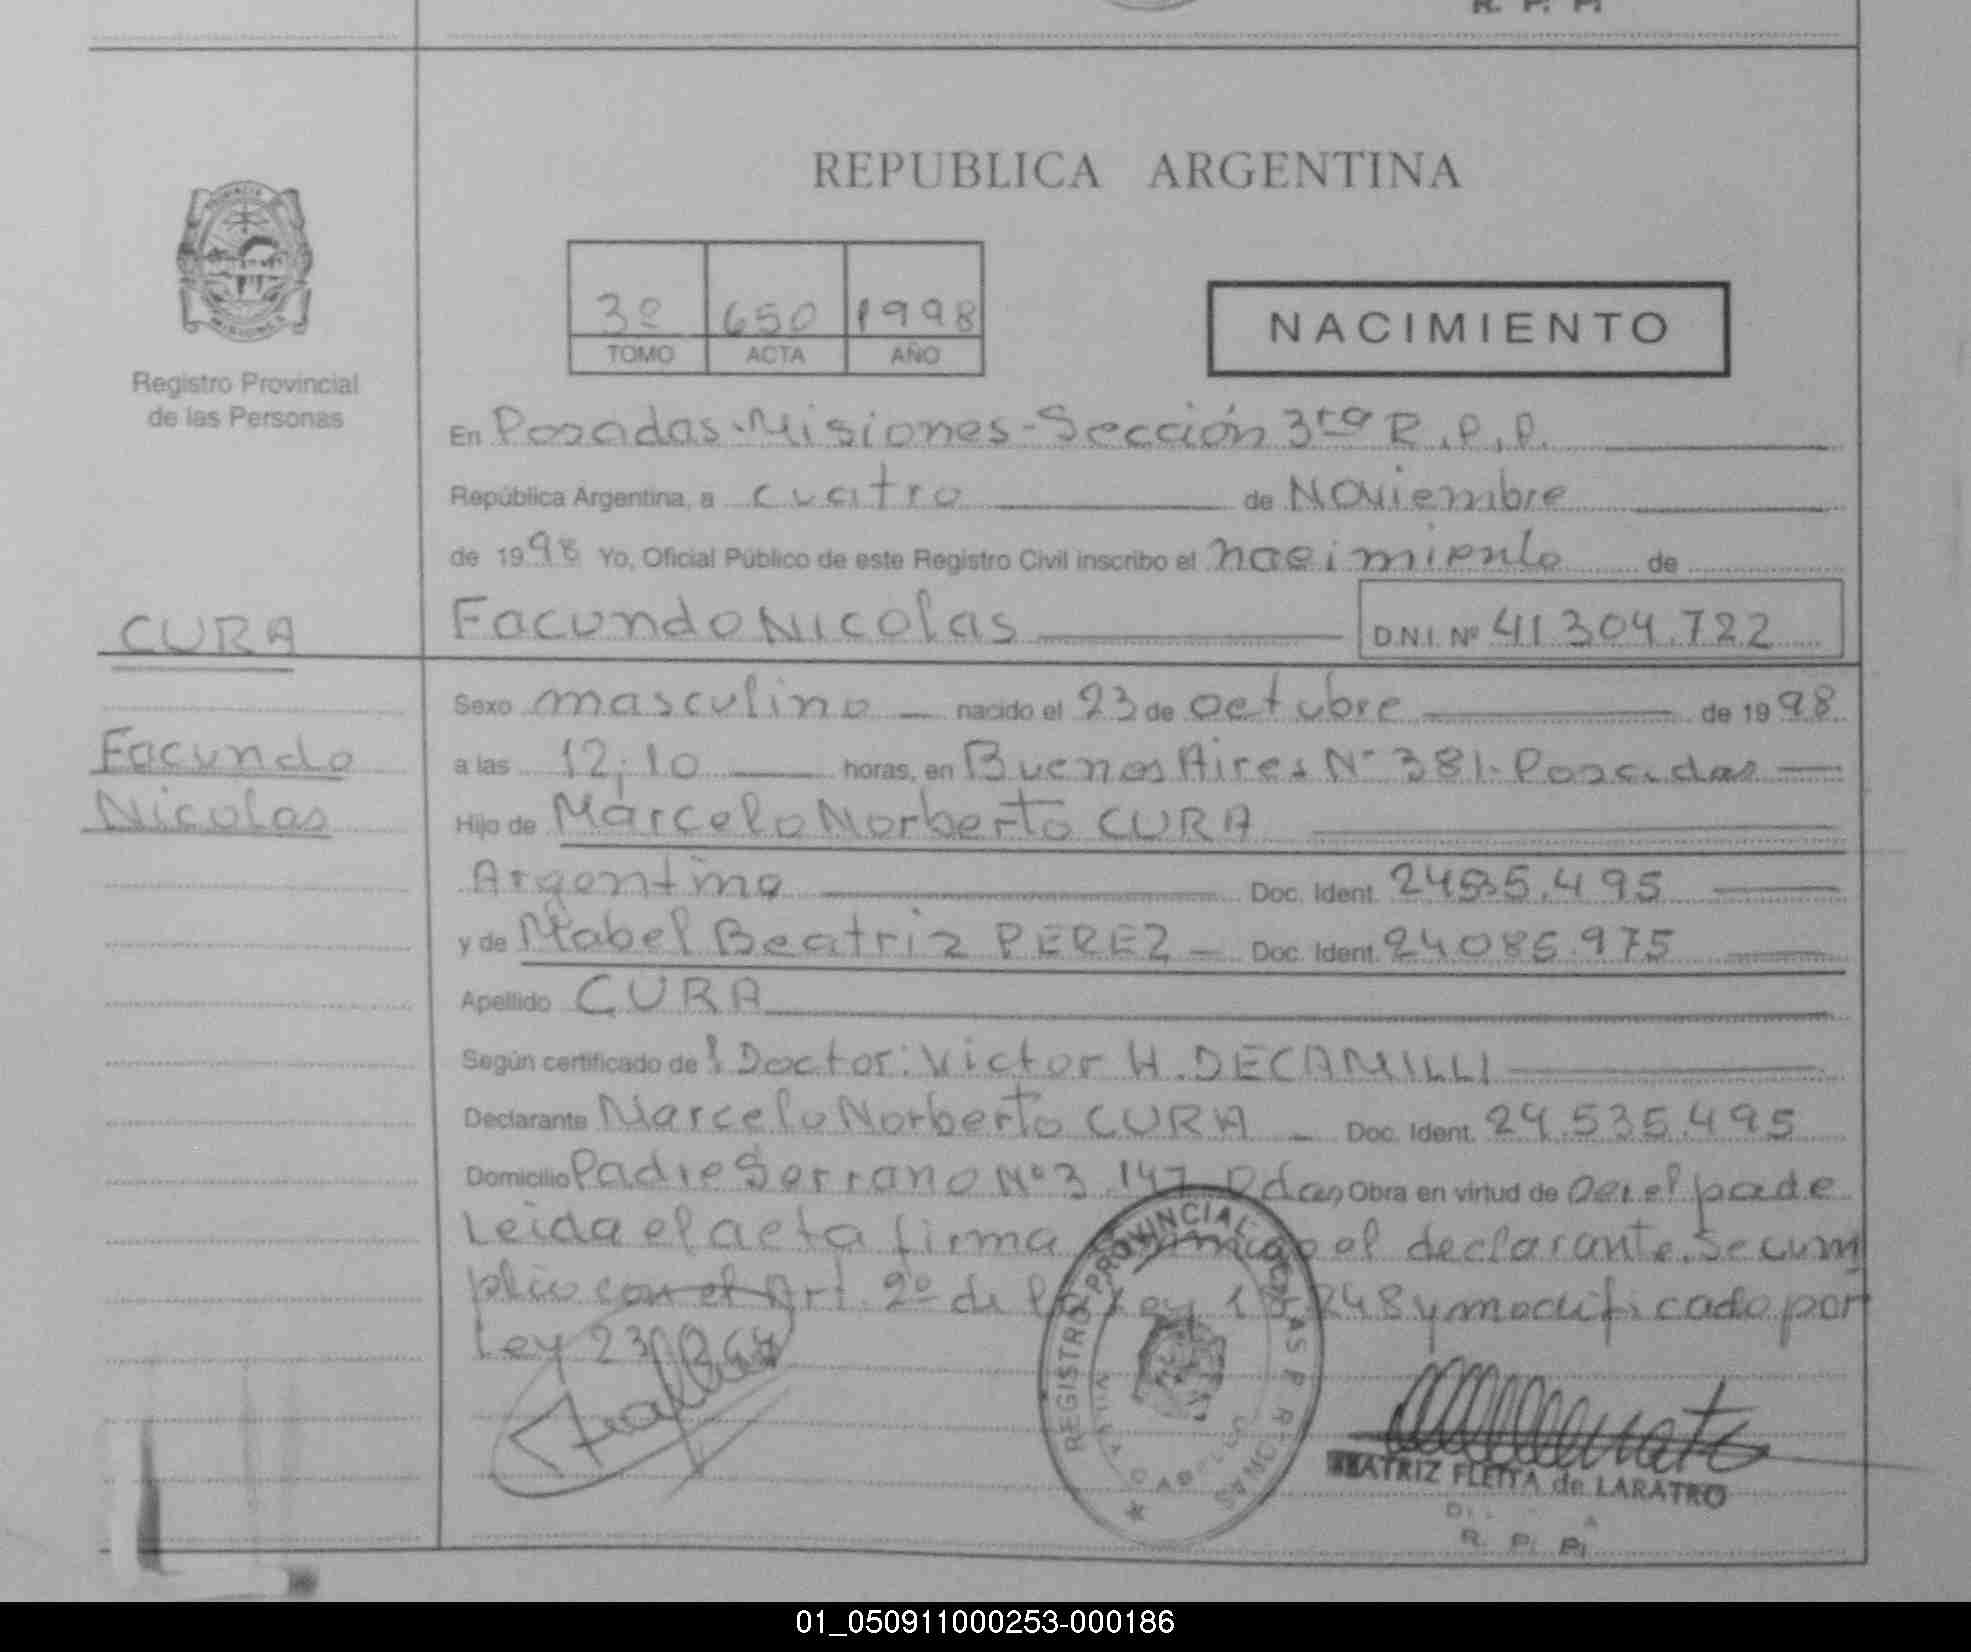 R. P. P.
REPUBLICA ARGENTINA
3º 650 1998
TOMO ACTA AÑO
NACIMIENTO
Registro Provincial
de las Personas
En Posadas-Misiones-Sección 3ra R.P.P.
República Argentina, a cuatro de Noviembre
de 1998 Yo, Oficial Público de este Registro Civil inscribo el nacimiento de
CURA
Facundo Nicolas D.N.I. Nº 41.304.722
Sexo masculino nacido el 23 de octubre de 1998
Facundo
a las 12,10 horas, en Buenos Aires Nº 381-Posadas
Nicolas
Hijo de Marcelo Norberto CURA
Argentino Doc. Ident. 495
y de Mabel Beatriz PEREZ Doc. Ident. 975
Apellido CURA
Según certificado de: Doctor: Victor H. DECAMILLI
Declarante Marcelo Norberto CURA Doc. Ident. 24.535.495
Domicilio Padre Serrano Nº 3.147 Pdas, Obra en virtud de ser el padre
Leida el acta firma conmigo el declarante. Se cum
plio con el Art. 2º de la Ley 18.248 y modificado por
Ley 23
REGISTRO PROVINCIAL DE LAS PERSONAS
BEATRIZ FLEITA de LARATRO
R. P. P.
01_050911000253-000186